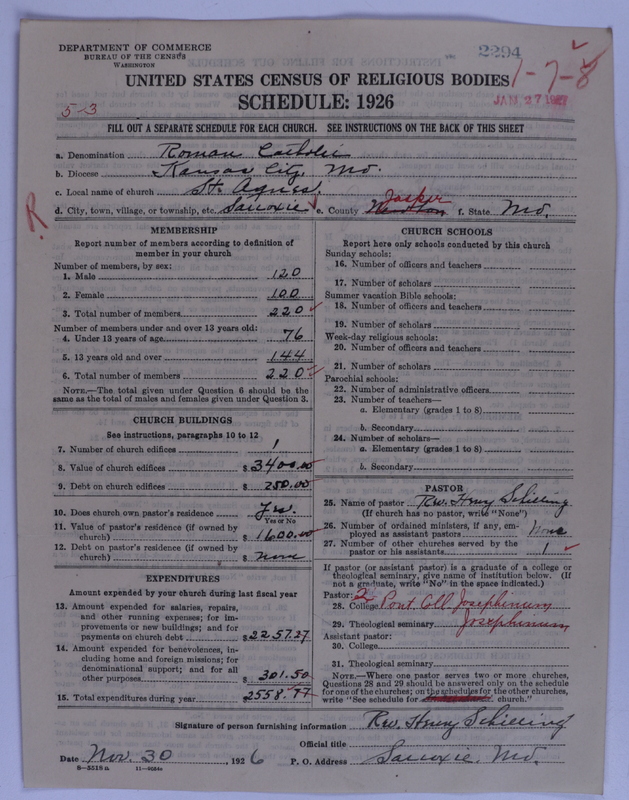 DEPARTMENT OF COMMERCE
BUREAU OF THE CENSUS
WASHINGTON
2294
1-7-8
UNITED STATES CENSUS OF RELIGIOUS BODIES
JAN 27 1927
SCHEDULE: 1926
5-3
FILL OUT A SEPARATE SCHEDULE FOR EACH CHURCH. SEE INSTRUCTIONS ON THE BACK OF THIS SHEET
a. Denomination Roman Catholic
b. Diocese Kansas City, Mo.
c. Local name of church St. Agnes.
d. City, town, village, or township, etc. Sarcoxie e. County Newton Jasper f. State Mo.
R
MEMBERSHIP
Report number of members according to definition of
member in your church
Number of members, by sex:
1. Male 120
2. Female 100
3. Total number of members 220
Number of members under and over 13 years old:
4. Under 13 years of age 76
5. 13 years old and over 144
6. Total number of members 220
NOTE.—The total given under Question 6 should be the
same as the total of males and females given under Question 3.
CHURCH BUILDINGS
See instructions, paragraphs 10 to 12
7. Number of church edifices 1
8. Value of church edifices $ 3400.00
9. Debt on church edifices $ 250.00
10. Does church own pastor's residence Yes.
Yes or No
11. Value of pastor's residence (if owned by
church) $ 1600.00
12. Debt on pastor's residence (if owned by
church) $ None
EXPENDITURES
Amount expended by your church during last fiscal year
13. Amount expended for salaries, repairs,
and other running expenses; for im-
provements or new buildings; and for
payments on church debt $ 2257.27
14. Amount expended for benevolences, in-
cluding home and foreign missions; for
denominational support; and for all
other purposes $ 301.50
15. Total expenditures during year $ 2558.77
CHURCH SCHOOLS
Report here only schools conducted by this church
Sunday schools:
16. Number of officers and teachers
17. Number of scholars
Summer vacation Bible schools:
18. Number of officers and teachers
19. Number of scholars
Week-day religious schools:
20. Number of officers and teachers
21. Number of scholars
Parochial schools:
22. Number of administrative officers
23. Number of teachers—
a. Elementary (grades 1 to 8)
b. Secondary
24. Number of scholars—
a. Elementary (grades 1 to 8)
b. Secondary
PASTOR
25. Name of pastor Rev. Henry Schilling
(If church has no pastor, write "None")
26. Number of ordained ministers, if any, em-
ployed as assistant pastors None
27. Number of other churches served by the
pastor or his assistants 1
If pastor (or assistant pastor) is a graduate of a college or
theological seminary, give name of institution below. (If
not a graduate, write "No" in the space indicated.)
Pastor: 2
28. College Pont. Coll. Josephinum
29. Theological seminary Josephinum
Assistant pastor:
30. College
31. Theological seminary
NOTE.—Where one pastor serves two or more churches,
Questions 28 and 29 should be answered only on the schedule
for one of the churches; on the schedules for the other churches,
write "See schedule for church."
Signature of person furnishing information Rev. Henry Schilling
Official title
Date Nov. 30, 1926 P. O. Address Sarcoxie, Mo.
8-5518a 11-9084